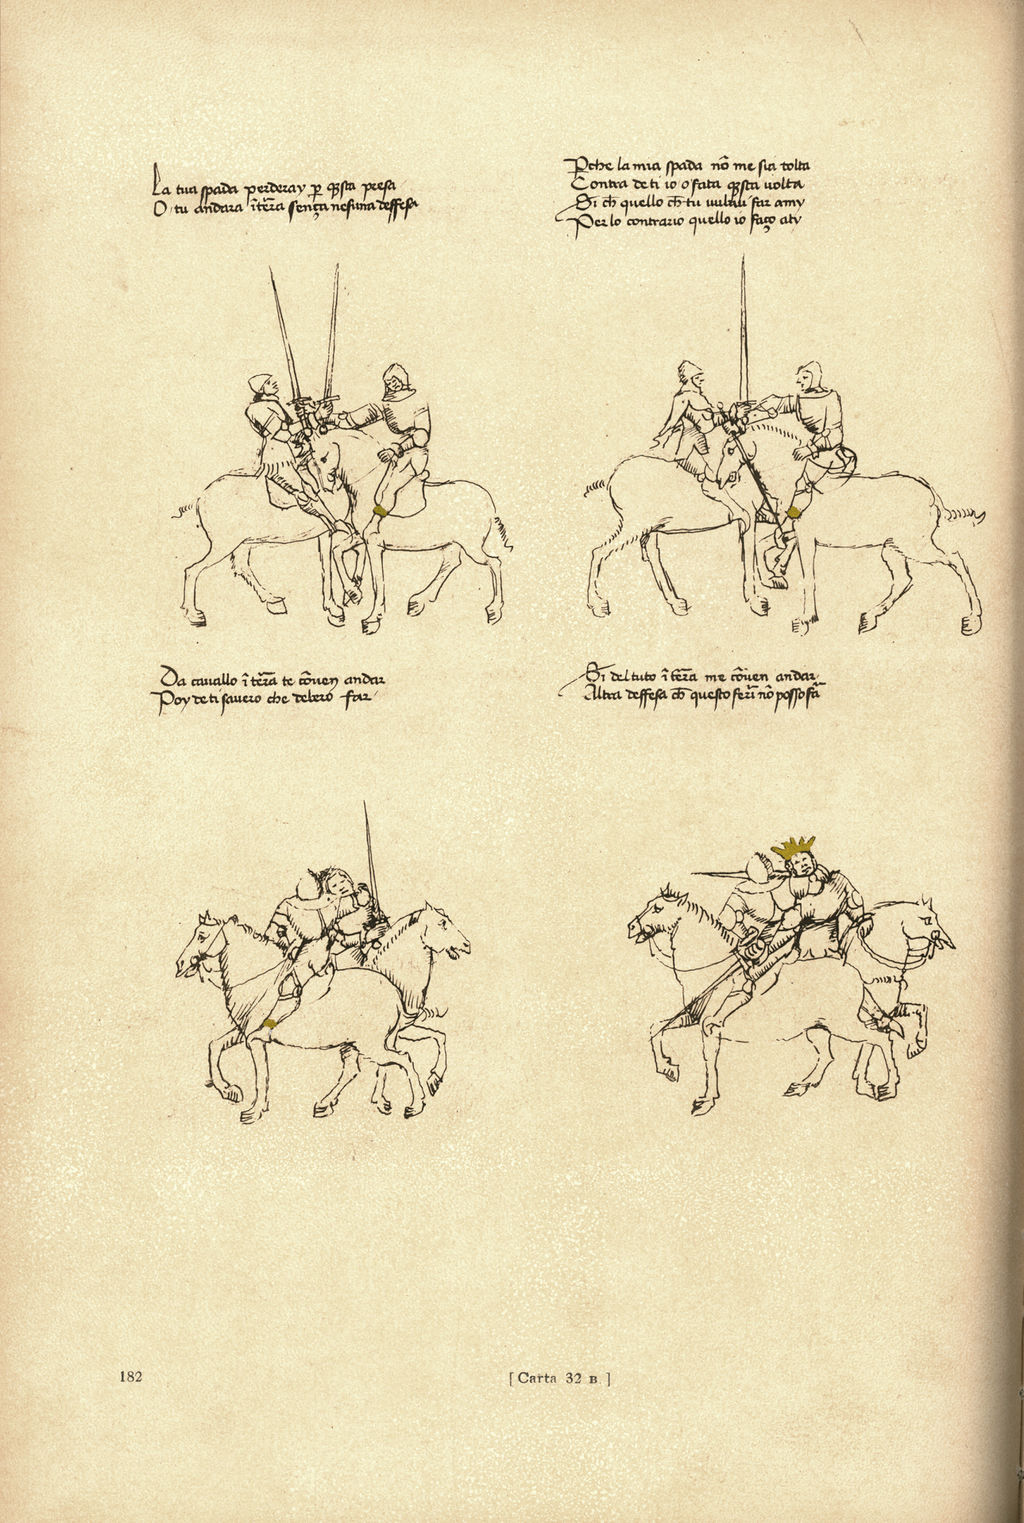 La tua spada perderay p̱ q̱sta presa
O tu andara ĩ tẽra sença nesuna deffesa
Pche la mia spada nõ me sia tolta
Contra de ti io o fata q̱sta uolta
Si ch̃ quello ch̃ tu far amy
Per lo contrario quello io faço aty
Da cauallo ĩ tẽra te cõuen andar
Poy de ti sauero che debero far
Si del tuto ĩ tẽra me cõuen andar
Altra deffesa ch̃ questo nõ posso fã
182
[ Carta 32 B ]